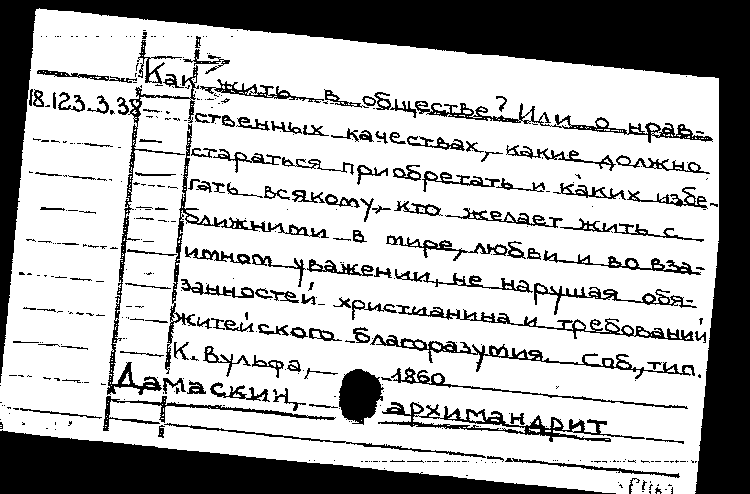 Как жить в обществе? Или о нрав-
18.123.3.38
ственных качествах, какие должно
стараться приобретать и каких избе-
гать всякому, кто желает жить с
ближними в мире, любви и во вза-
имном уважении, не нарушая обя-
занностей христианина и требований
житейского благоразумия. Спб., тип.
К. Вульфа, 1860.
Дамаскин, архимандрит